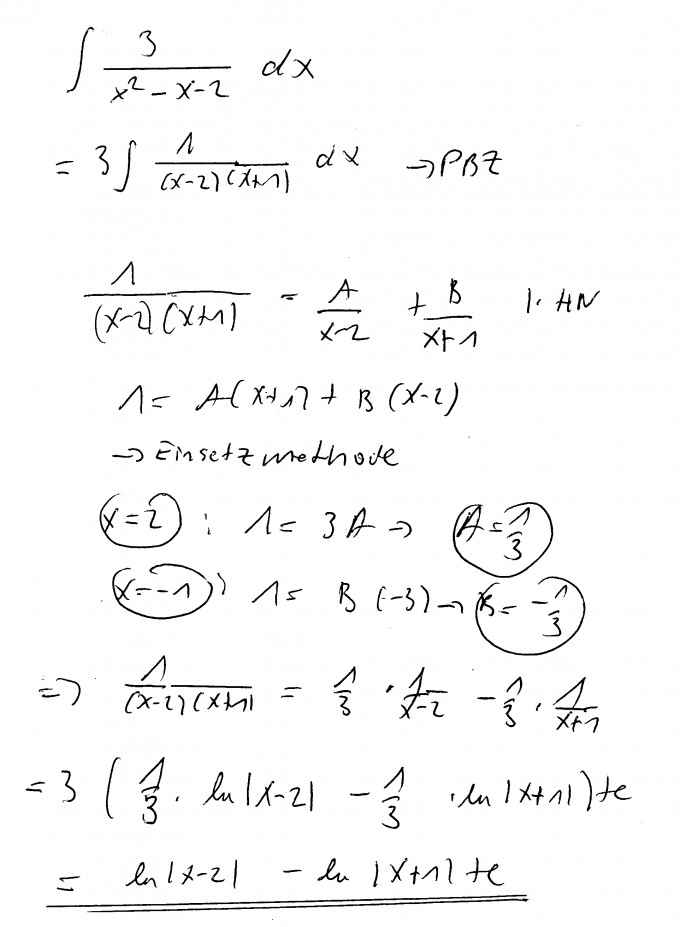 ∫ 3/(x² - x - 2) dx
= 3 ∫ 1/((x-2)(x+1)) dx → PBZ
1/((x-2)(x+1)) = A/(x-2) + B/(x+1) | · HN
1 = A(x+1) + B(x-2)
→ Einsetzmethode
x=2 : 1 = 3A → A = 1/3
x=-1 : 1 = B(-3) → B = -1/3
=> 1/((x-2)(x+1)) = 1/3 · 1/(x-2) - 1/3 · 1/(x+1)
= 3 (1/3 · ln|x-2| - 1/3 · ln|x+1|) + c
= ln|x-2| - ln|x+1| + c